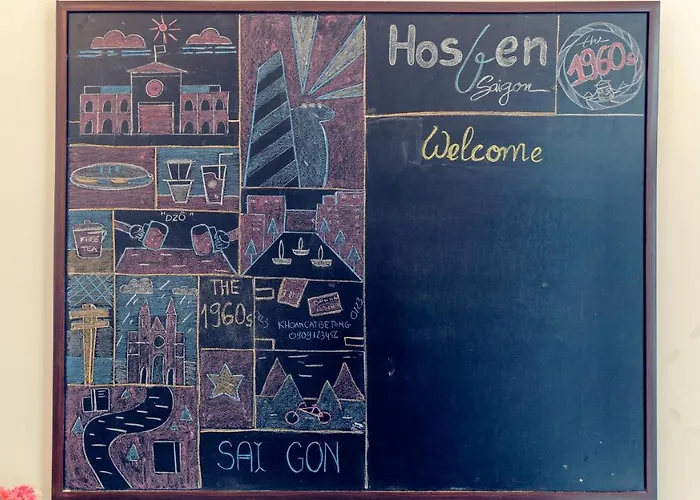 Hosǥen
Saigon
the
1960s
Welcome
"DZÔ"
FREE
TEA
THE
1960s
KHOANCATBETONG
0909123456
SAI GON